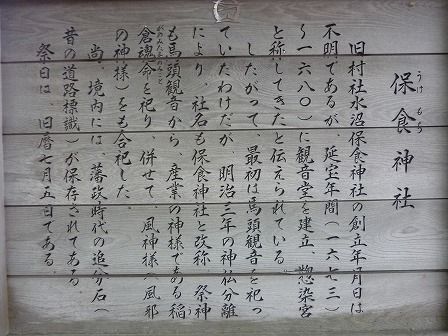 保食神社
うけもち
旧村社水沼保食神社の創立年月日は
不明であるが、延宝年間(一六七三
〜一六八〇)に観音堂を建立、惣染宮
と称してきたと伝えられている。
したがって、最初は馬頭観音を祀っ
ていたわけだが、明治三年の神仏分離
により、社名も保食神社と改称、祭神
も馬頭観音から、産業の神様である稲
倉魂命を祀り、併せて、風神様(風邪
の神様)をも合祀した。
尚、境内には、藩政時代の追分石(
昔の道路標識)が保存されてある
祭日は、旧暦七月五日である。